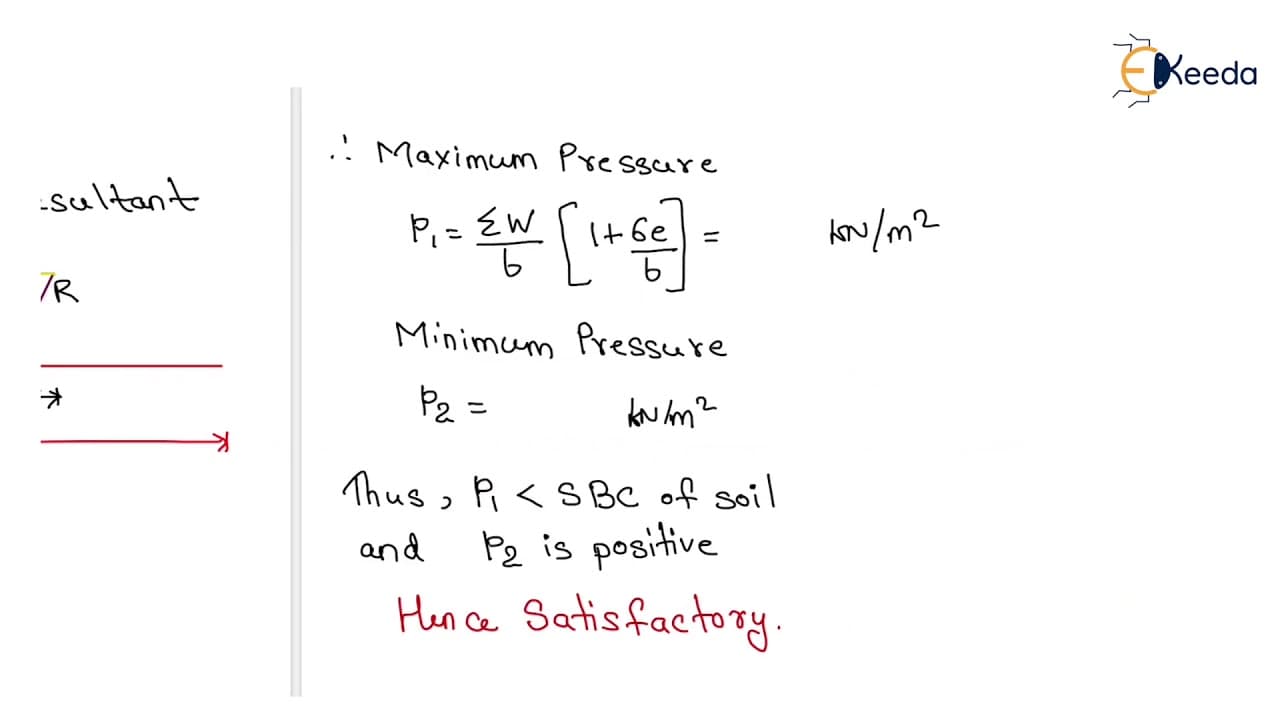 EKeeda
∴ Maximum Pressure
P₁ = ΣW/b [1 + 6e/b] = kN/m²
Minimum Pressure
P₂ = kN/m²
Thus, P₁ < SBC of soil
and P₂ is positive
Hence Satisfactory.
sultant
R